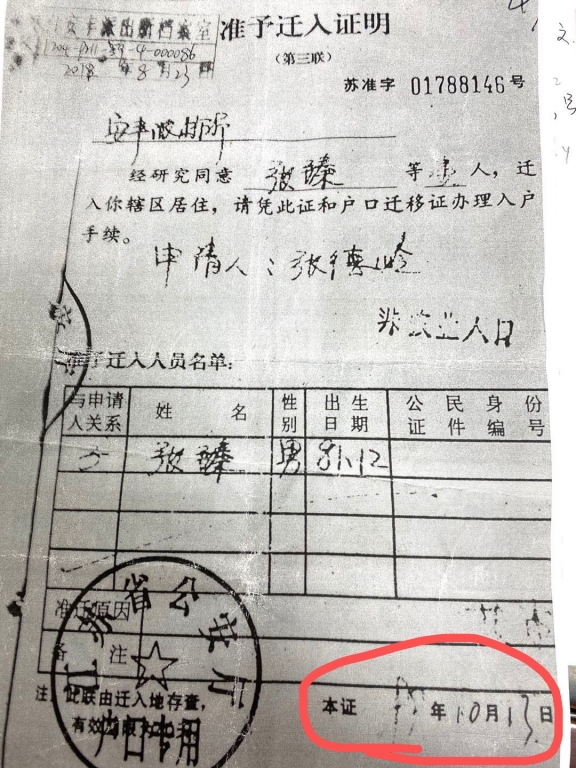 准予迁入证明
派出所档案室
(第三联)
4-000086
2018年8月23日
苏准字 01788146号
安丰派出所
经研究同意 张臻 等 人,迁
入你辖区居住,请凭此证和户口迁移证办理入户
手续。
申请人:张德岭
非农业人口
准予迁入人员名单:
与申请人关系 姓名 性别 出生日期 公民身份证件编号
子 张臻 男 81.12
准迁原因
备注
江苏省公安厅
户口专用
注:此联由迁入地存查,
有效期限为
本证 年10月13日